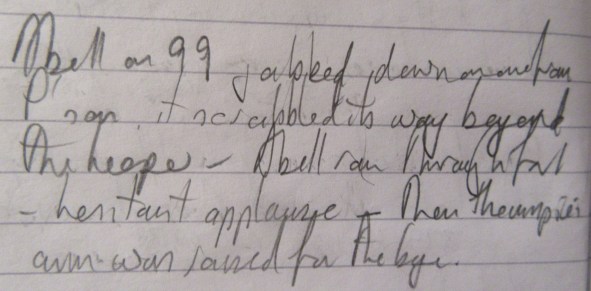 Abell on 99 jabbed down on one from
it scrabbled its way beyond
the keeper – Abell ran through for
– hesitant applause – then the umpire's
arm was raised for the bye.